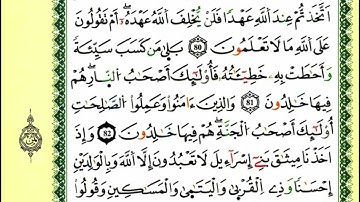 أَتَّخَذْتُمْ عِندَ اللَّهِ عَهْدًا فَلَن يُخْلِفَ اللَّهُ عَهْدَهُۥٓ أَمْ تَقُولُونَ
عَلَى اللَّهِ مَا لَا تَعْلَمُونَ 80 بَلَىٰ مَن كَسَبَ سَيِّئَةً
وَأَحَٰطَتْ بِهِۦ خَطِيٓـَٔتُهُۥ فَأُو۟لَٰٓئِكَ أَصْحَٰبُ النَّارِ هُمْ
فِيهَا خَٰلِدُونَ 81 وَالَّذِينَ ءَامَنُوا۟ وَعَمِلُوا۟ الصَّٰلِحَٰتِ
أُو۟لَٰٓئِكَ أَصْحَٰبُ الْجَنَّةِ هُمْ فِيهَا خَٰلِدُونَ 82 وَإِذْ
أَخَذْنَا مِيثَٰقَ بَنِىٓ إِسْرَٰٓءِيلَ لَا تَعْبُدُونَ إِلَّا اللَّهَ وَبِالْوَٰلِدَيْنِ
إِحْسَانًا وَذِى الْقُرْبَىٰ وَالْيَتَٰمَىٰ وَالْمَسَٰكِينِ وَقُولُوا۟